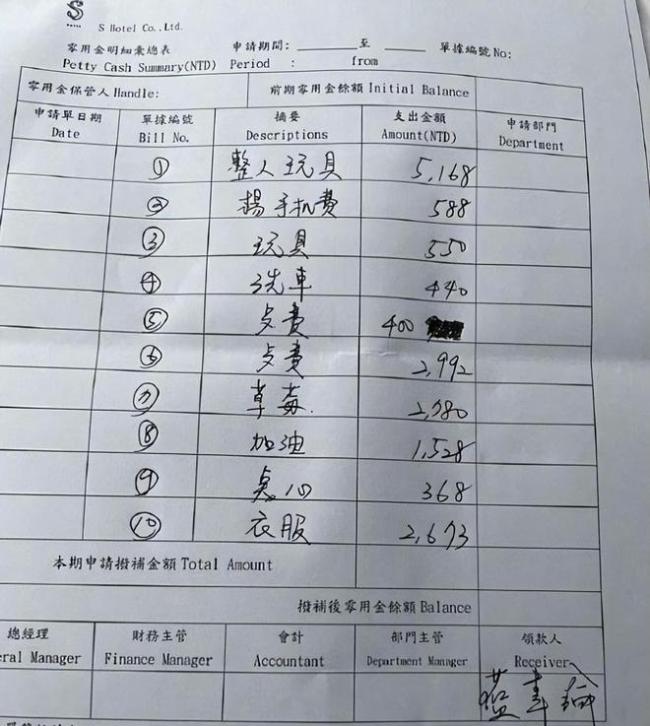 S
S Hotel Co., Ltd.
零用金明細彙總表 申請期間: ______ 至 ______ 單據編號 No:
Petty Cash Summary(NTD) Period : from
零用金保管人 Handle: 前期零用金餘額 Initial Balance
申請單日期 單據編號 摘要 支出金額 申請部門
Date Bill No. Descriptions Amount(NTD) Department
① 整人玩具 5,168
② 楊手扒費 588
③ 玩具 550
④ 洗車 440
⑤ 400
⑥ 2,992
⑦ 草莓. 2,980
⑧ 加油 1,528
⑨ 點心 368
⑩ 衣服 2,673
本期申請撥補金額 Total Amount
撥補後零用金餘額 Balance
總經理 財務主管 會計 部門主管 領款人
eral Manager Finance Manager Accountant Department Manager Receiver